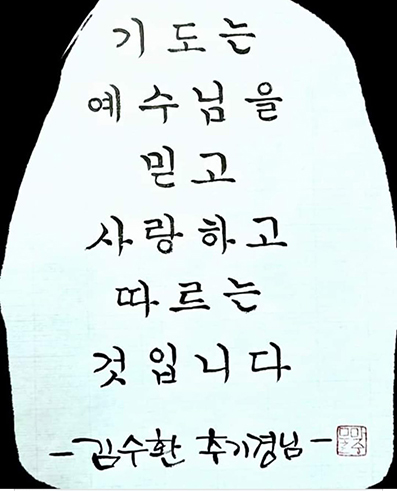 기도는
예수님을
믿고
사랑하고
따르는
것입니다
-김수환 추기경님-